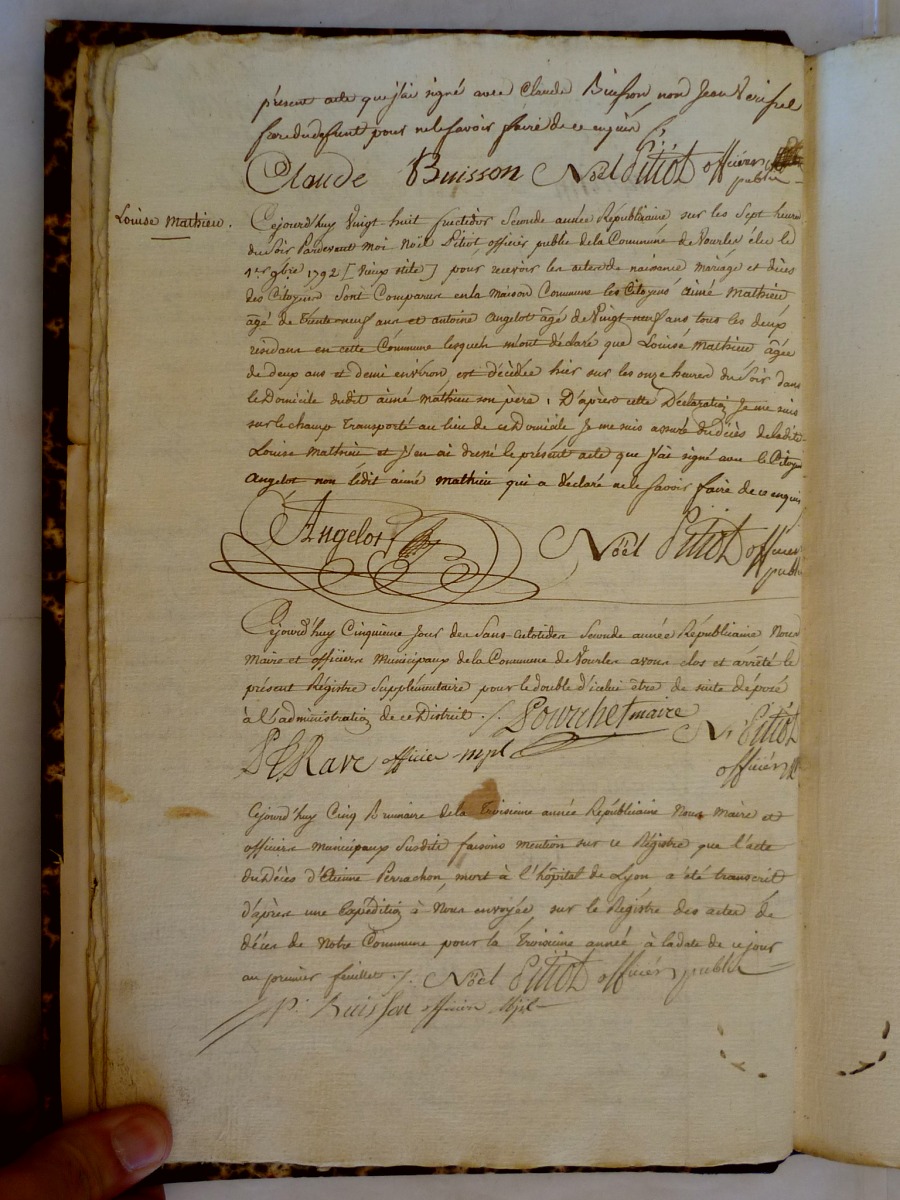 présent acte que j'ai signé avec Claude Buisson non Jean
frere du défunt pour ne le savoir faire de ce enquis
Claude Buisson Noël Pitiot officier public
Louise Mathieu.
Cejourd'huy Vingt huit fructidor Seconde année Républicaine sur les Sept heures
du Soir Pardevant Moi Noël Pitiot officier public de la Commune de Vourles élu le
1er 9bre 1792 [Vieux stile] pour recevoir les actes de naissance mariage et décès
des Citoyens Sont Comparus en la Maison Commune les Citoyens aimé Mathieu
âgé de trente neuf ans et antoine Angelot âgé de Vingt neuf ans tous les deux
résidans en cette Commune lesquels m'ont déclaré que Louise Mathieu âgée
de deux ans et demi environ, est décédée hier sur les onze heures du Soir dans
le Domicile dudit aimé mathieu son père, D'après cette Déclaration Je me suis
sur le champ Transporté au lieu de ce Domicile Je me suis assuré du décès de ladite
Louise Mathieu et j'en ai dressé le présent acte que j'ai signé avec le Citoyen
Angelot non ledit aimé mathieu qui a déclaré ne le savoir faire de ce enquis
Angelot Noël Pitiot officier
public
Cejourd'huy Cinquieme Jour des Sans-culotides Seconde année Républicaine Nous
Maire et officiers Municipaux de la Commune de Vourles avons clos et arrêté le
présent Régistre Supplémentaire pour le double d'icelui être de suite déposé
à l'administration de ce District ./. Pourchet maire N. Pitiot
officier mpl officier
Cejourd'huy Cinq Brumaire de la Troisieme année Républicaine Nous Maire et
officiers municipaux Susdits faisons mention sur ce Régistre que l'acte
du Décès d'Etienne Perrachon, mort à l'hôpital de Lyon a été transcrit
d'après une Expédition à Nous envoyée sur le Régistre des actes de
décès de Notre Commune pour la Troisieme année à la date de ce jour
au premier feuillet ./. Noël Pitiot officier public
p. Buisson officier Mpl